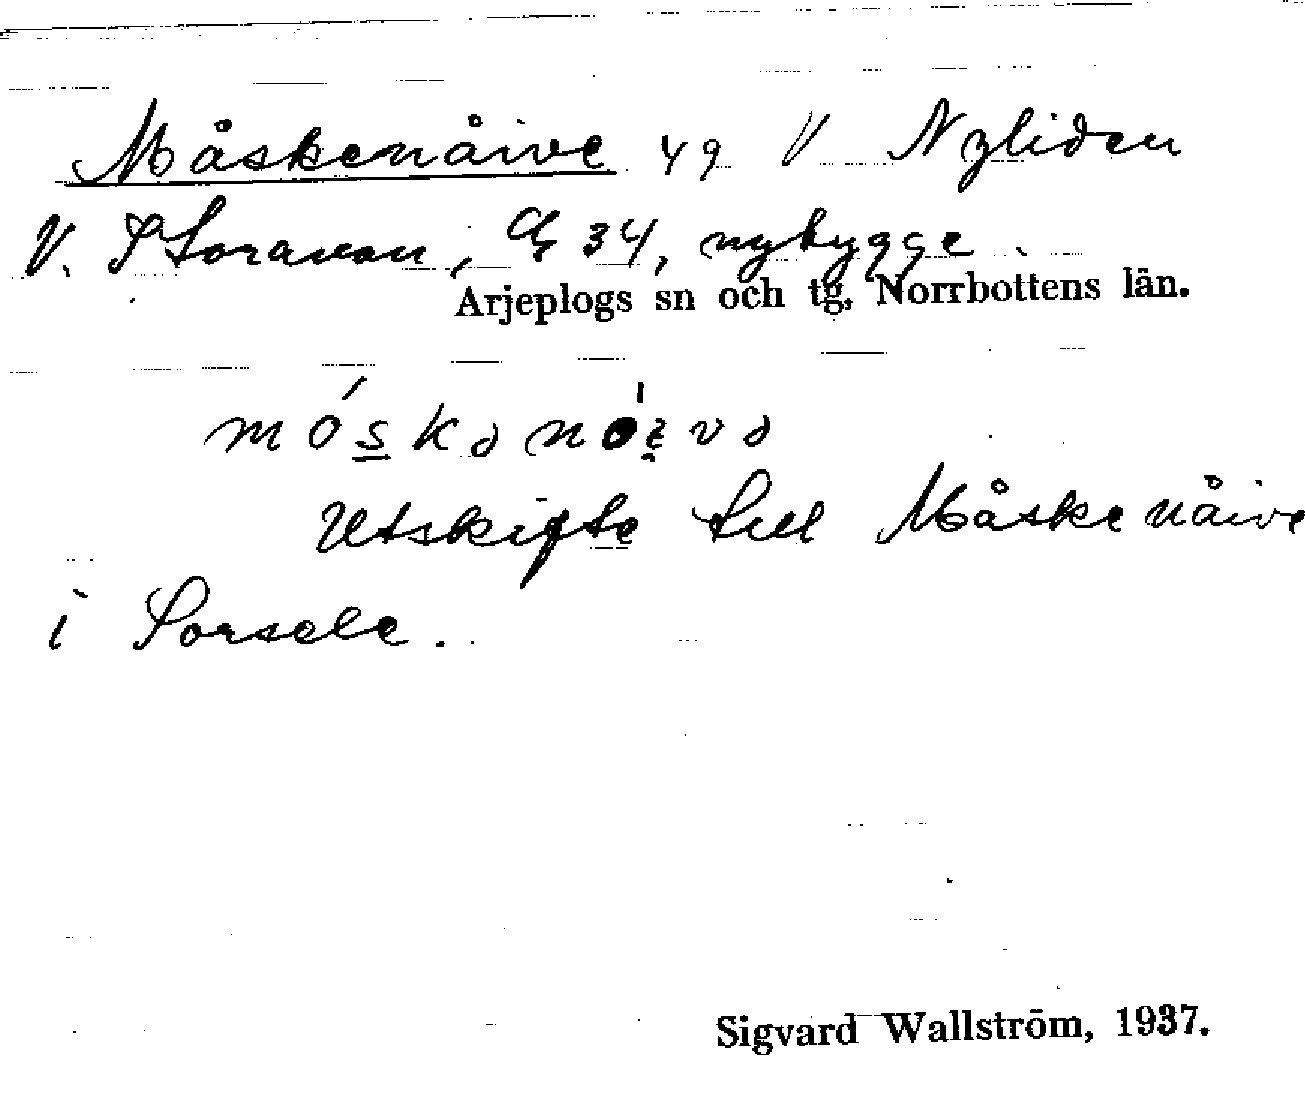 Måskenåive 49 V Nyliden
V. Storavan, G 34, nybygge.
Arjeplogs sn och tg, Norrbottens län.
Utskifte till Måskenåive
i Sorsele.
Sigvard Wallström, 1937.